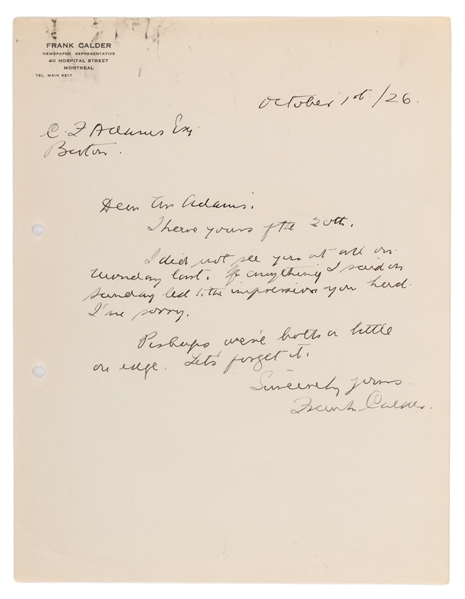 FRANK CALDER
NEWSPAPER REPRESENTATIVE
40 HOSPITAL STREET
MONTREAL
TEL. MAIN 6217
October 1st/26.
C. F Adams Esq
Boston.
Dear Mr Adams.
I have yours of the 30th.
I did not see you at all on
Monday last. If anything I said on
Sunday led to the impression you had
I'm sorry.
Perhaps we're both a little
on edge. Let's forget it.
Sincerely yours.
Frank Calder.